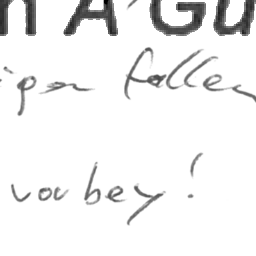 n A Gu
fallen
vorbey!